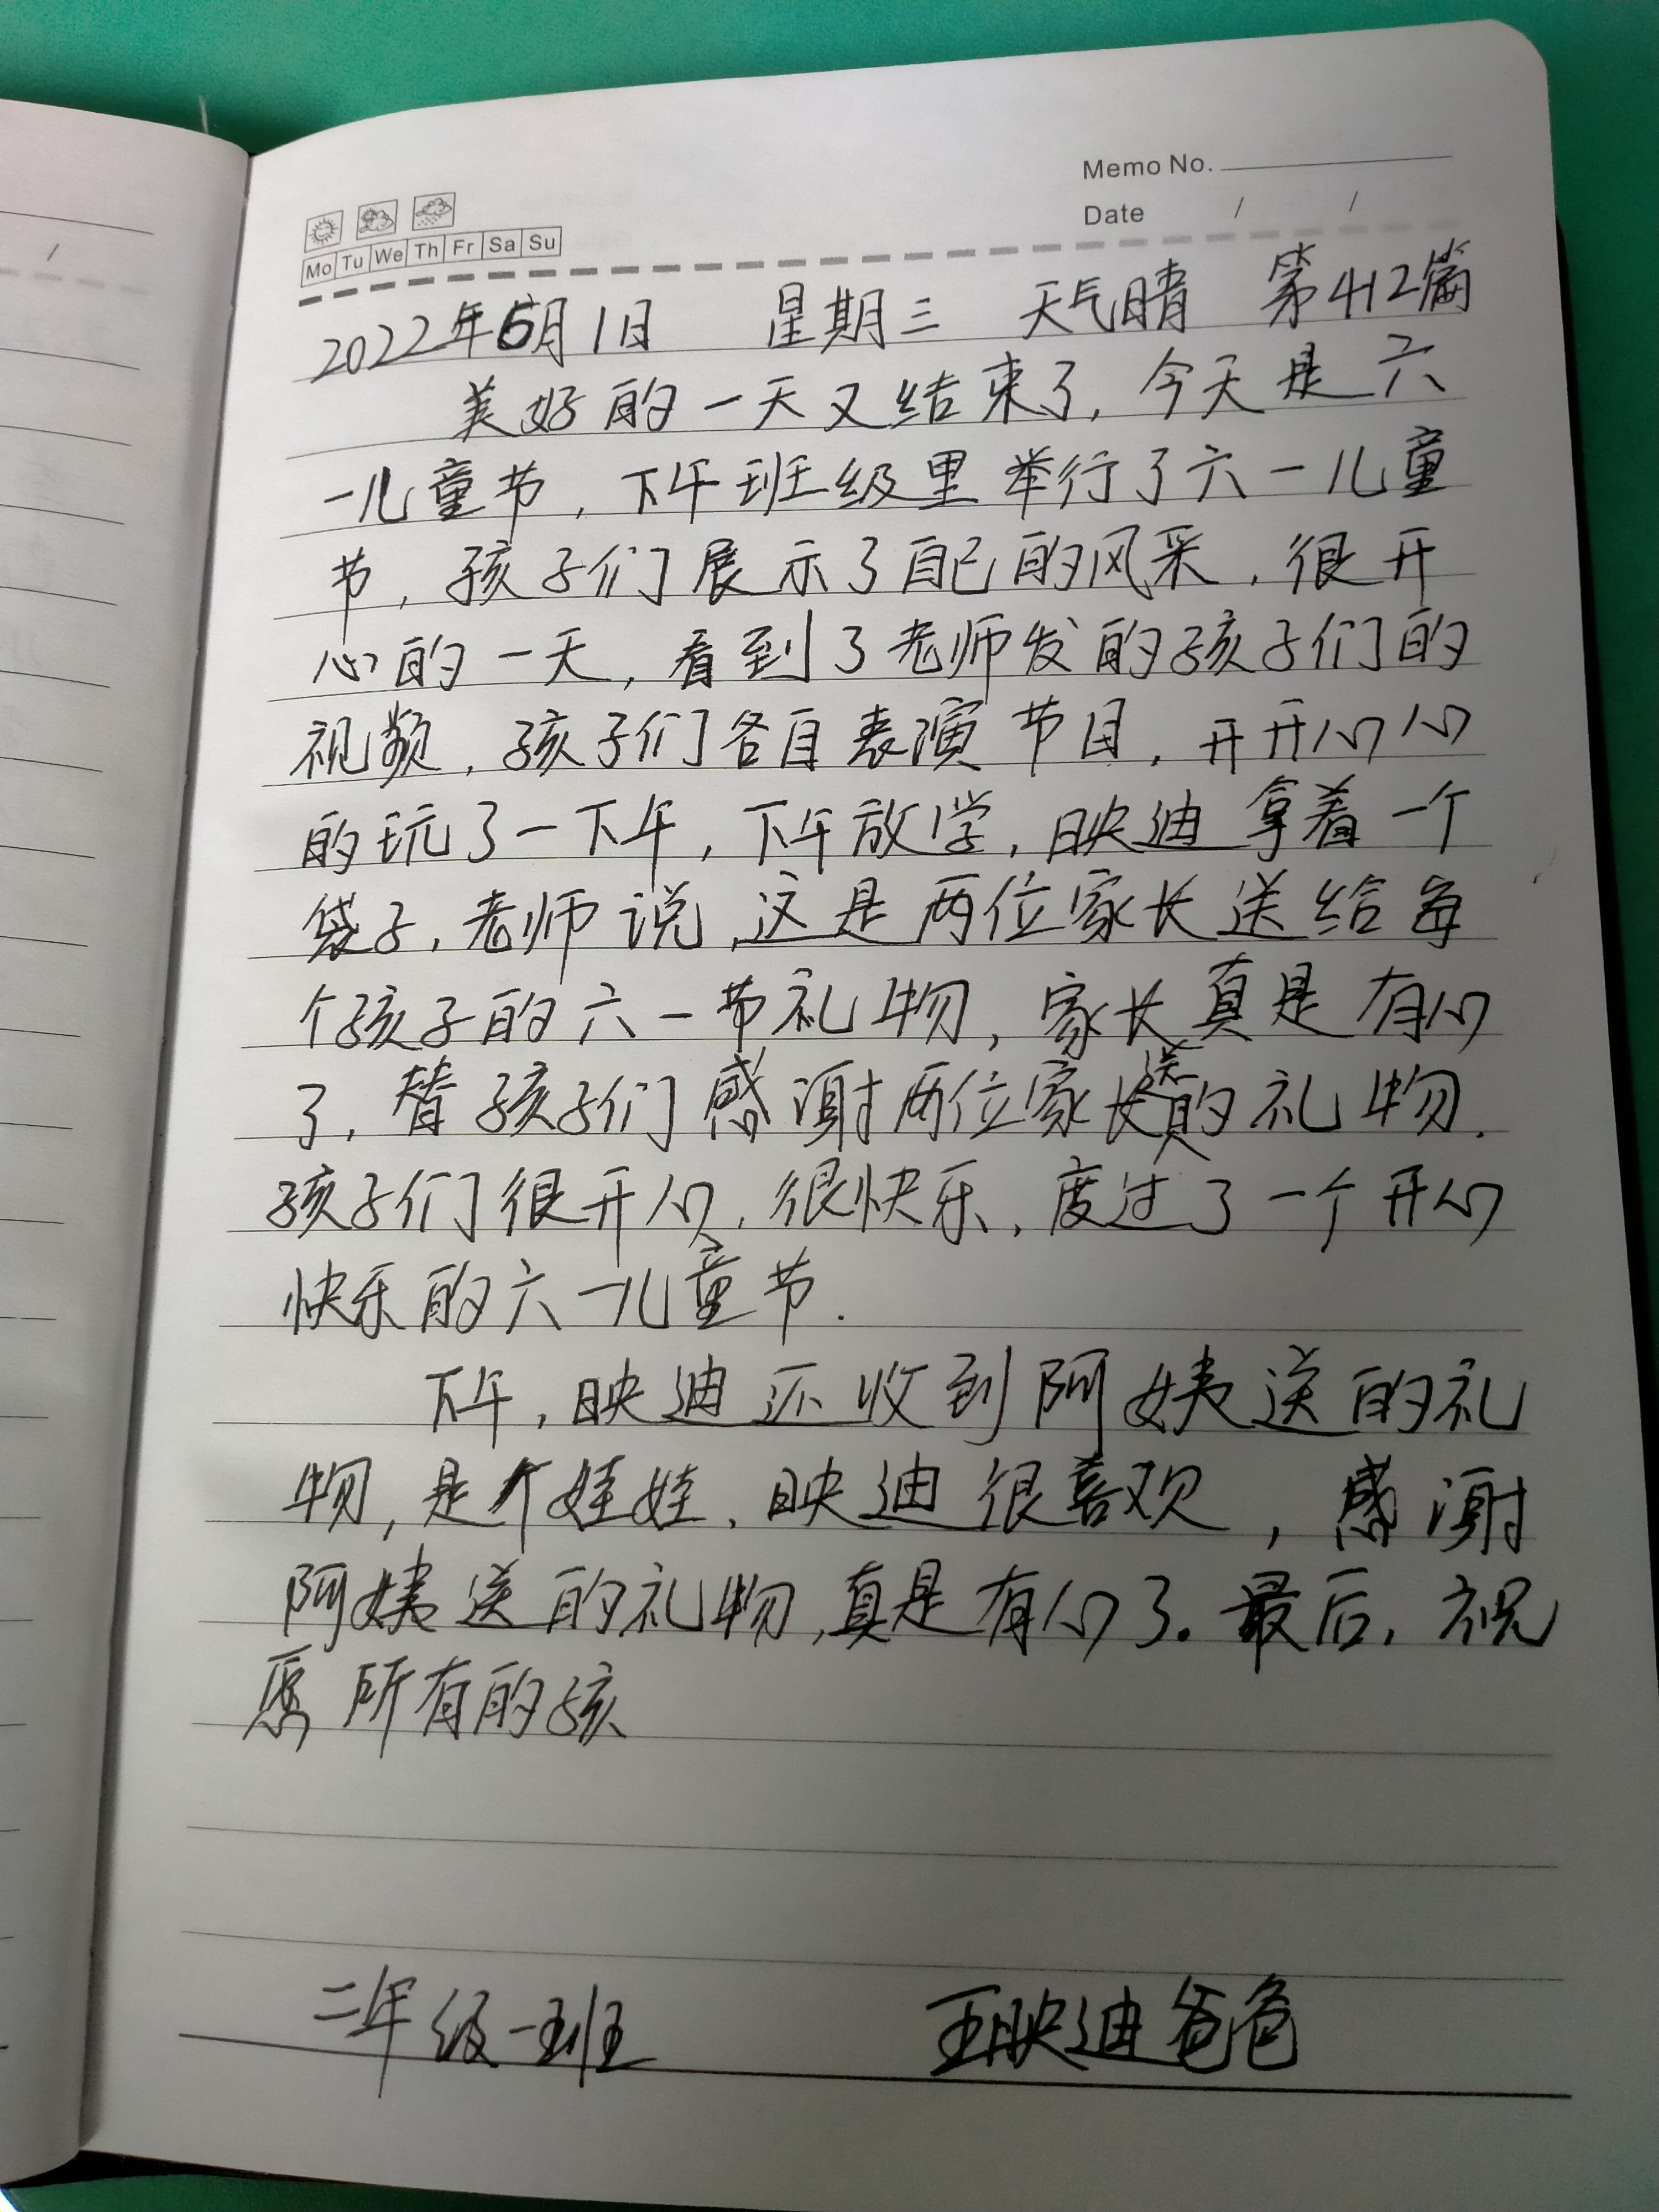 Memo No.
Date / /
Mo Tu We Th Fr Sa Su
2022年6月1日 星期三 天气晴 第412篇
美好的一天又结束了,今天是六
一儿童节,下午班级里举行了六一儿童
节,孩子们展示了自己的风采,很开
心的一天,看到了老师发的孩子们的
视频,孩子们各自表演节目,开开心心
的玩了一下午,下午放学,映迪拿着一个
袋子,老师说,这是两位家长送给每
个孩子的六一节礼物,家长真是有心
了,替孩子们感谢两位家长送的礼物.
孩子们很开心,很快乐,度过了一个开心
快乐的六一儿童节.
下午,映迪还收到阿姨送的礼
物,是个娃娃,映迪很喜欢,感谢
阿姨送的礼物,真是有心了.最后,祝
愿所有的孩
二年级一班 王映迪爸爸